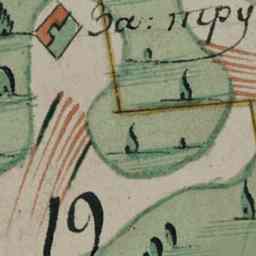 За: тру
19